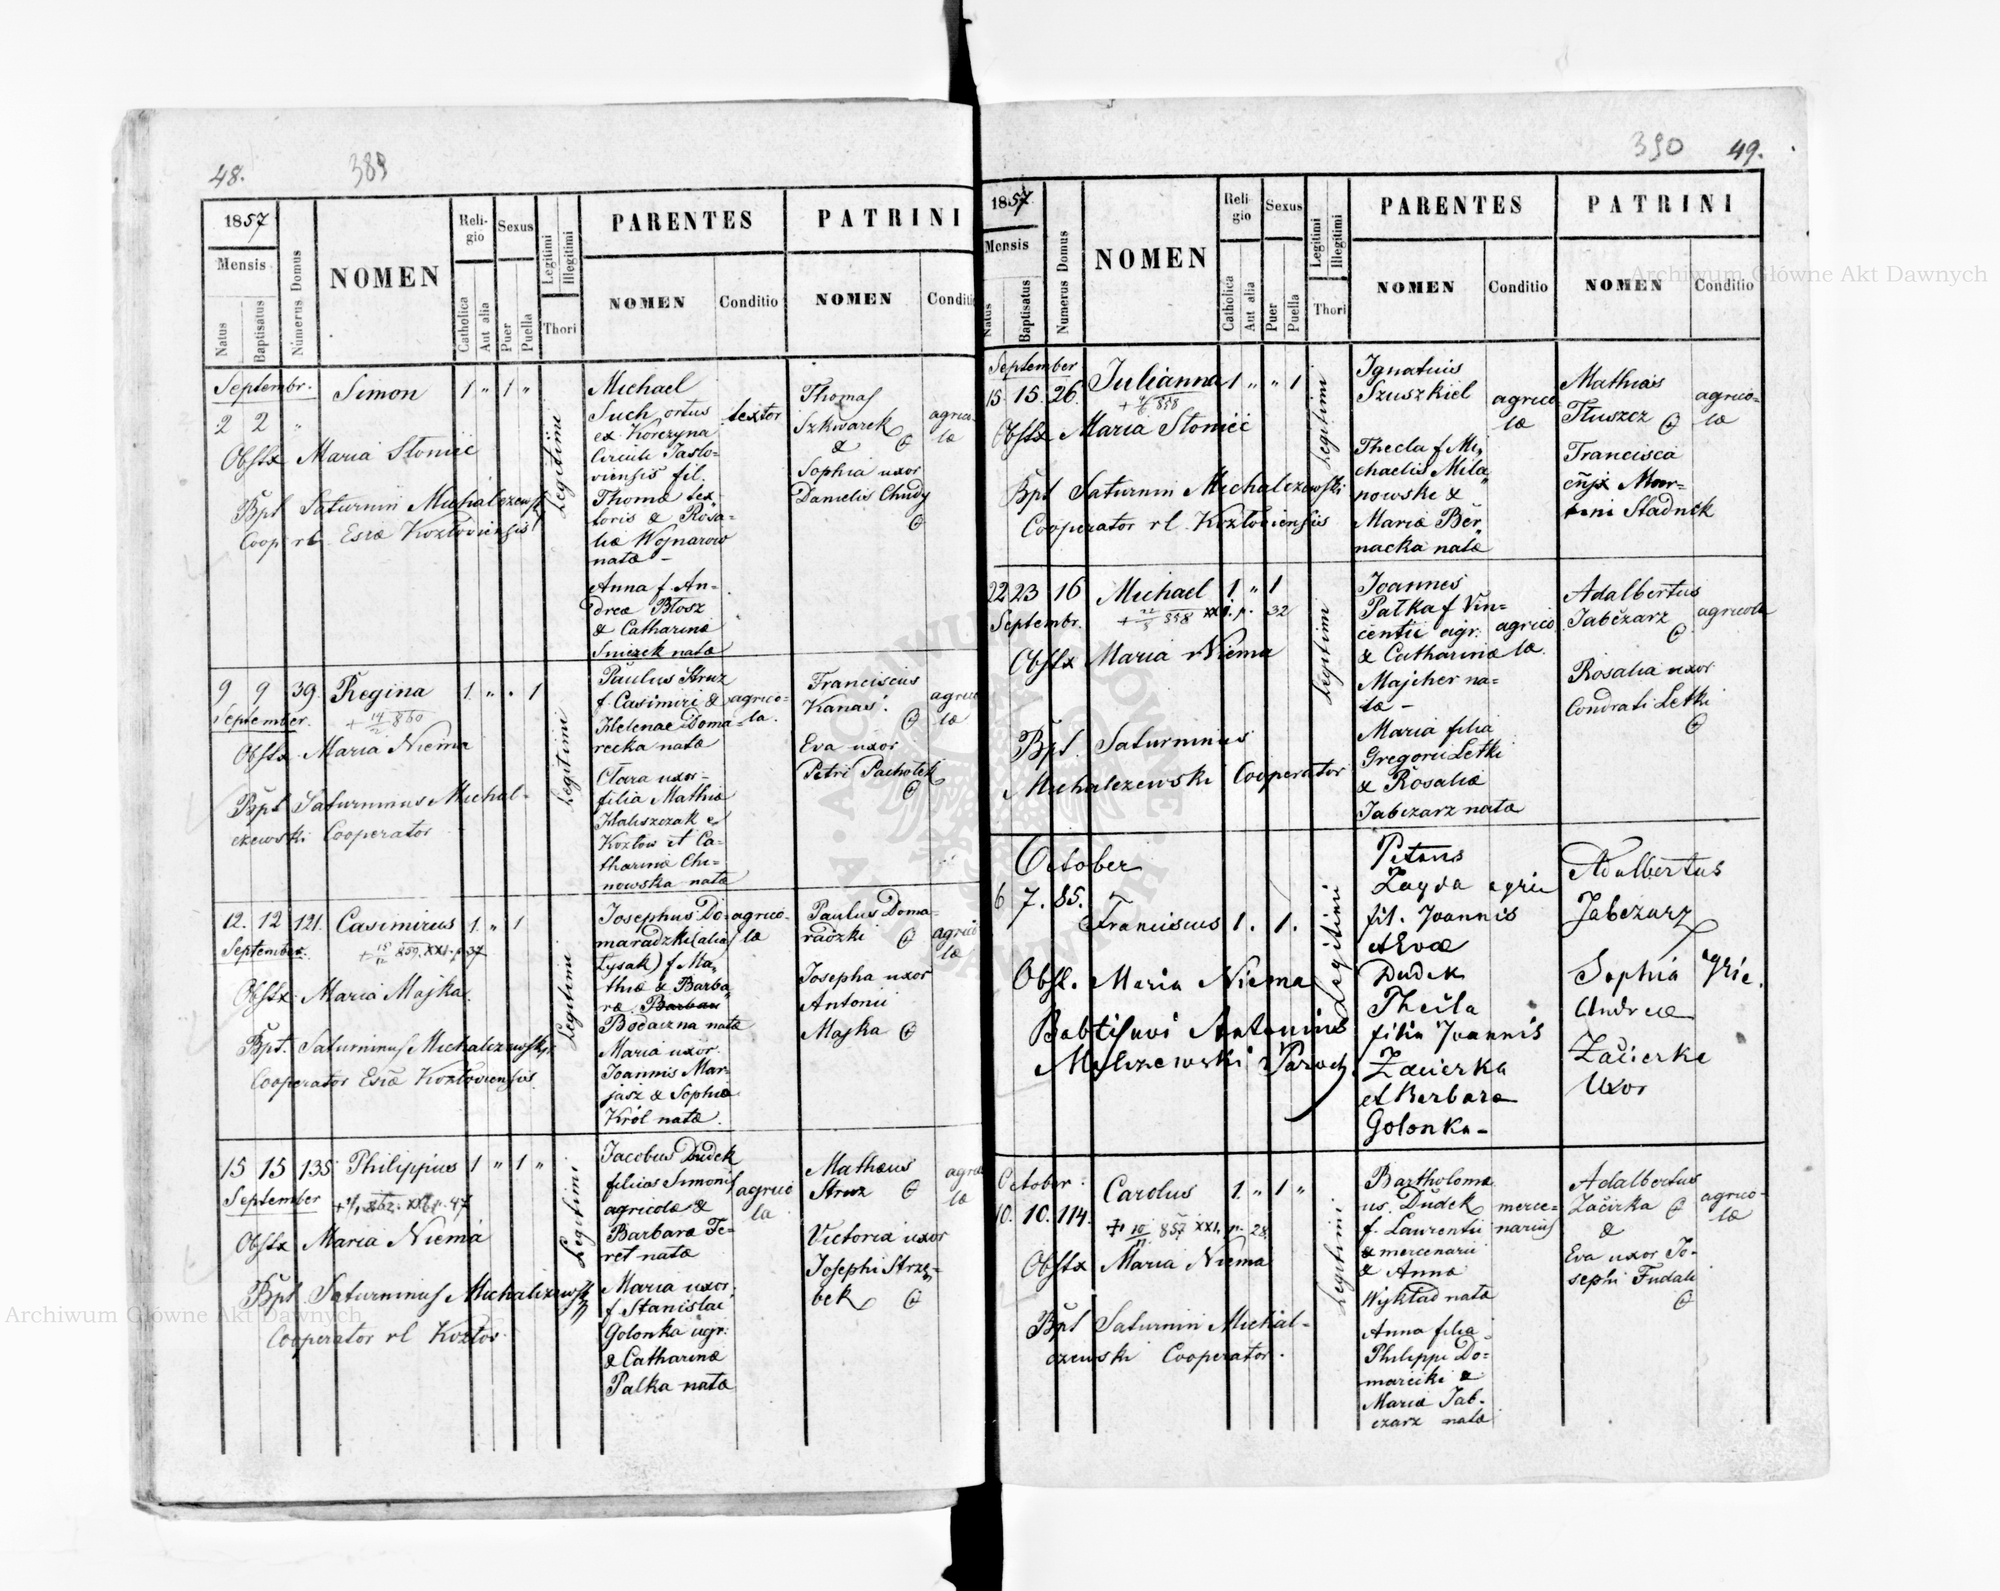 48.
389
1857
Mensis
Natus
Baptisatus
Numerus Domus
NOMEN
Reli-
gio
Catholica
Aut alia
Sexus
Puer
Puella
Legitimi
Illegitimi
Thori
PARENTES
NOMEN
Conditio
PATRINI
NOMEN
Septembr.
2 2 "
Simon 1 " 1 "
Obstx Maria Słomić
Bpt Saturnin Michalczewski
Coop rl. Eslæ Kozłoviensis
Legitimi
Michael
Such ortus
ex Korczyna
Circuli Jaslo-
viensis fil.
Thomæ tex-
toris & Rosa-
liæ Wojnarow
natæ -
Anna f. An-
dreæ Błosz
& Catharinæ
natæ
textor
Thomas
Szkwarek
&
Sophia uxor
Danielis Chudy
agrico-
læ
9 9 39. Regina 1. " " 1
September.
+ 14 860
Obstx Maria Niema
Bpt Saturninus Michal-
czewski Cooperator
Legitimi
Paulus Struz
f. Casimiri &
Helenae Doma-
recka natæ
Clara uxor-
filia Mathiæ
Haliszczak e
Kozłow et Ca-
tharinæ Chi-
nowska natæ
agrico-
la.
Franciscus
Kanas.
Eva uxor
Petri Pachołek
agrico
læ
12. 12 121. Casimirus 1. " 1
September.
+ 15/12 859. XXI. p. 37
Obstx Maria Majka.
Bpt. Saturninus Michalczewski
Cooperator Eslæ Kozłoviensis
Legitimi
Josephus Do-
maradzki (alias
Łysak) f. Ma-
thiæ & Barba-
ræ
natæ
Maria uxor
Joannis Mar-
jasz & Sophiæ
Król natæ.
agrico-
la
Paulus Doma-
radzki
Josepha uxor
Antonii
Majka
agrico
læ
15 15 135 Philippus 1 " 1 "
September
p. 47
Obstx Maria Niema
Bpt Saturninus Michalczewski
Cooperator rl Kozłov
Legitimi
Jacobus Dudek
filius Simonis
agricolæ &
Barbaræ Te-
ret natæ
Maria uxor
f. Stanislai
Golonka agr.
& Catharinæ
Pałka natæ
agrico
la
Mathæus
Struz
Victoria uxor
Josephi Strzę-
bek
agrico
læ
390 49.
1857.
Mensis
Natus
Baptisatus
Numerus Domus
NOMEN
Reli-
gio
Catholica
Aut alia
Sexus
Puer
Puella
Legitimi
Illegitimi
Thori
PARENTES
NOMEN
Conditio
PATRINI
NOMEN
Conditio
September
15 15. 26. Julianna 1 " " 1
858
Obstx Maria Słomić
Bpt Saturnin Michalczewski
Cooperator rl. Kozłoviensis
Legitimi
Ignatius
Szuszkiel
Thecla f Mi-
chaelis Mila-
nowski &
Mariæ Ber-
nacka natæ
agrico
læ
Mathias
Tłuszcz
Francisca
Mar-
tini Stadnik
agrico-
læ
22 23 16 Michael 1 " 1
Septembr.
858 XXI. p. 32
Obstx Maria Niema
Bpt Saturninus
Michalczewski Cooperator
Legitimi
Joannes
Pałka f Vin-
centii agr.
& Catharinæ
Majcher na-
tæ -
Maria filia
Gregorii Letki
& Rosaliæ
Jabczarz natæ
agrico
læ.
Adalbertus
Jabczarz
Rosalia uxor
Condrati Letki
agricola
October
6 7. 85. Franciscus 1. 1.
Obst. Maria Niema
Babtisavi Antonius
Paroch.
Legitimi
Petrus
Zayda agric
fil. Joannis
et Evæ
Dudek
Thecla
filia Joannis
Zacierka
et Barbara
Golonka-
Adalbertus
Jabczarz
Sophia agric.
Andreæ
Zacierka
Uxor
October.
10. 10. 114. Carolus 1. " 1 "
857 XXI. p. 28.
Obstx Maria Niema
Bpt Saturnin Michal-
czewski Cooperator.
Legitimi
Bartholomæ
us. Dudek
f. Laurentii
& mercenarii
& Anna
Wykład natæ
Anna filia
Philippi Do-
marciki &
Mariæ Jab-
czarz natæ
merce-
narius
Adalbertus
Zacirka
&
Eva uxor Jo-
sephi Fudali
agrico-
læ
Archiwum Główne Akt Dawnych
Archiwum Główne Akt Dawnych